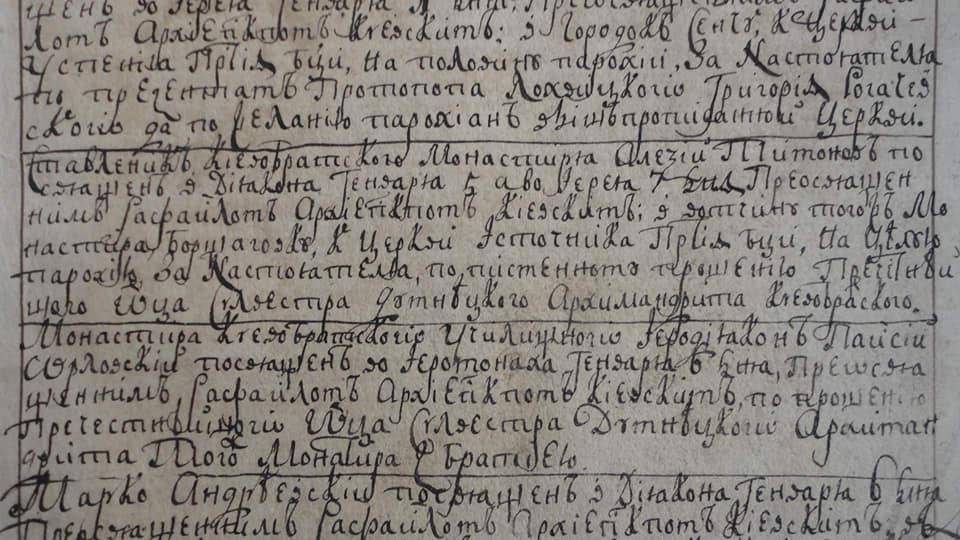 щенъ до Іерея Генваря
лотъ Архіепкпомъ Кіевскимъ: в Городокъ Сенчу, к Церкви
Успенія Прстія Бци, на половину парохіи, За Наслоятеля
по презентамъ Протопопа Лохвицкого Григорія Рогачев
ского да по желанію парохіанъ звишпрописанной Церкви.
Ставленикъ Кіевобратского Монастиря Алезій Платоновъ по
священъ в Діакона Генваря 5 а во Іерея 7 дня Преосвящен
нимъ Рафаиломъ Архіепкпомъ Кіевскимъ; в вотчину тогожъ Мо
настира Борщаговку, к Церкви Источника Прстія Бци, на цѣлую
парохію, За Наслоятеля, по писменному прошенію Пречестнѣй
шого Отца Сулвестра Думницкого Архимандрита Кіевобрацкого.
Монастира Кіевобратского Училищного Іеродіаконъ Паисій
Орловскій посвященъ во Іеромонаха Генваря 6 дня, Преосвя
щеннимъ, Рафаиломъ Архіепкпомъ Кіевскимъ, по прошенію
Пречестнѣйшого Отца Сулвестра Думницкого Архиман
дрита Того Монастира З братіею.
Марко Андріевскій посвященъ в Діакона, Генваря 6 дня
Преосвященнимъ Рафаиломъ Архіепкпомъ Кіевскимъ,